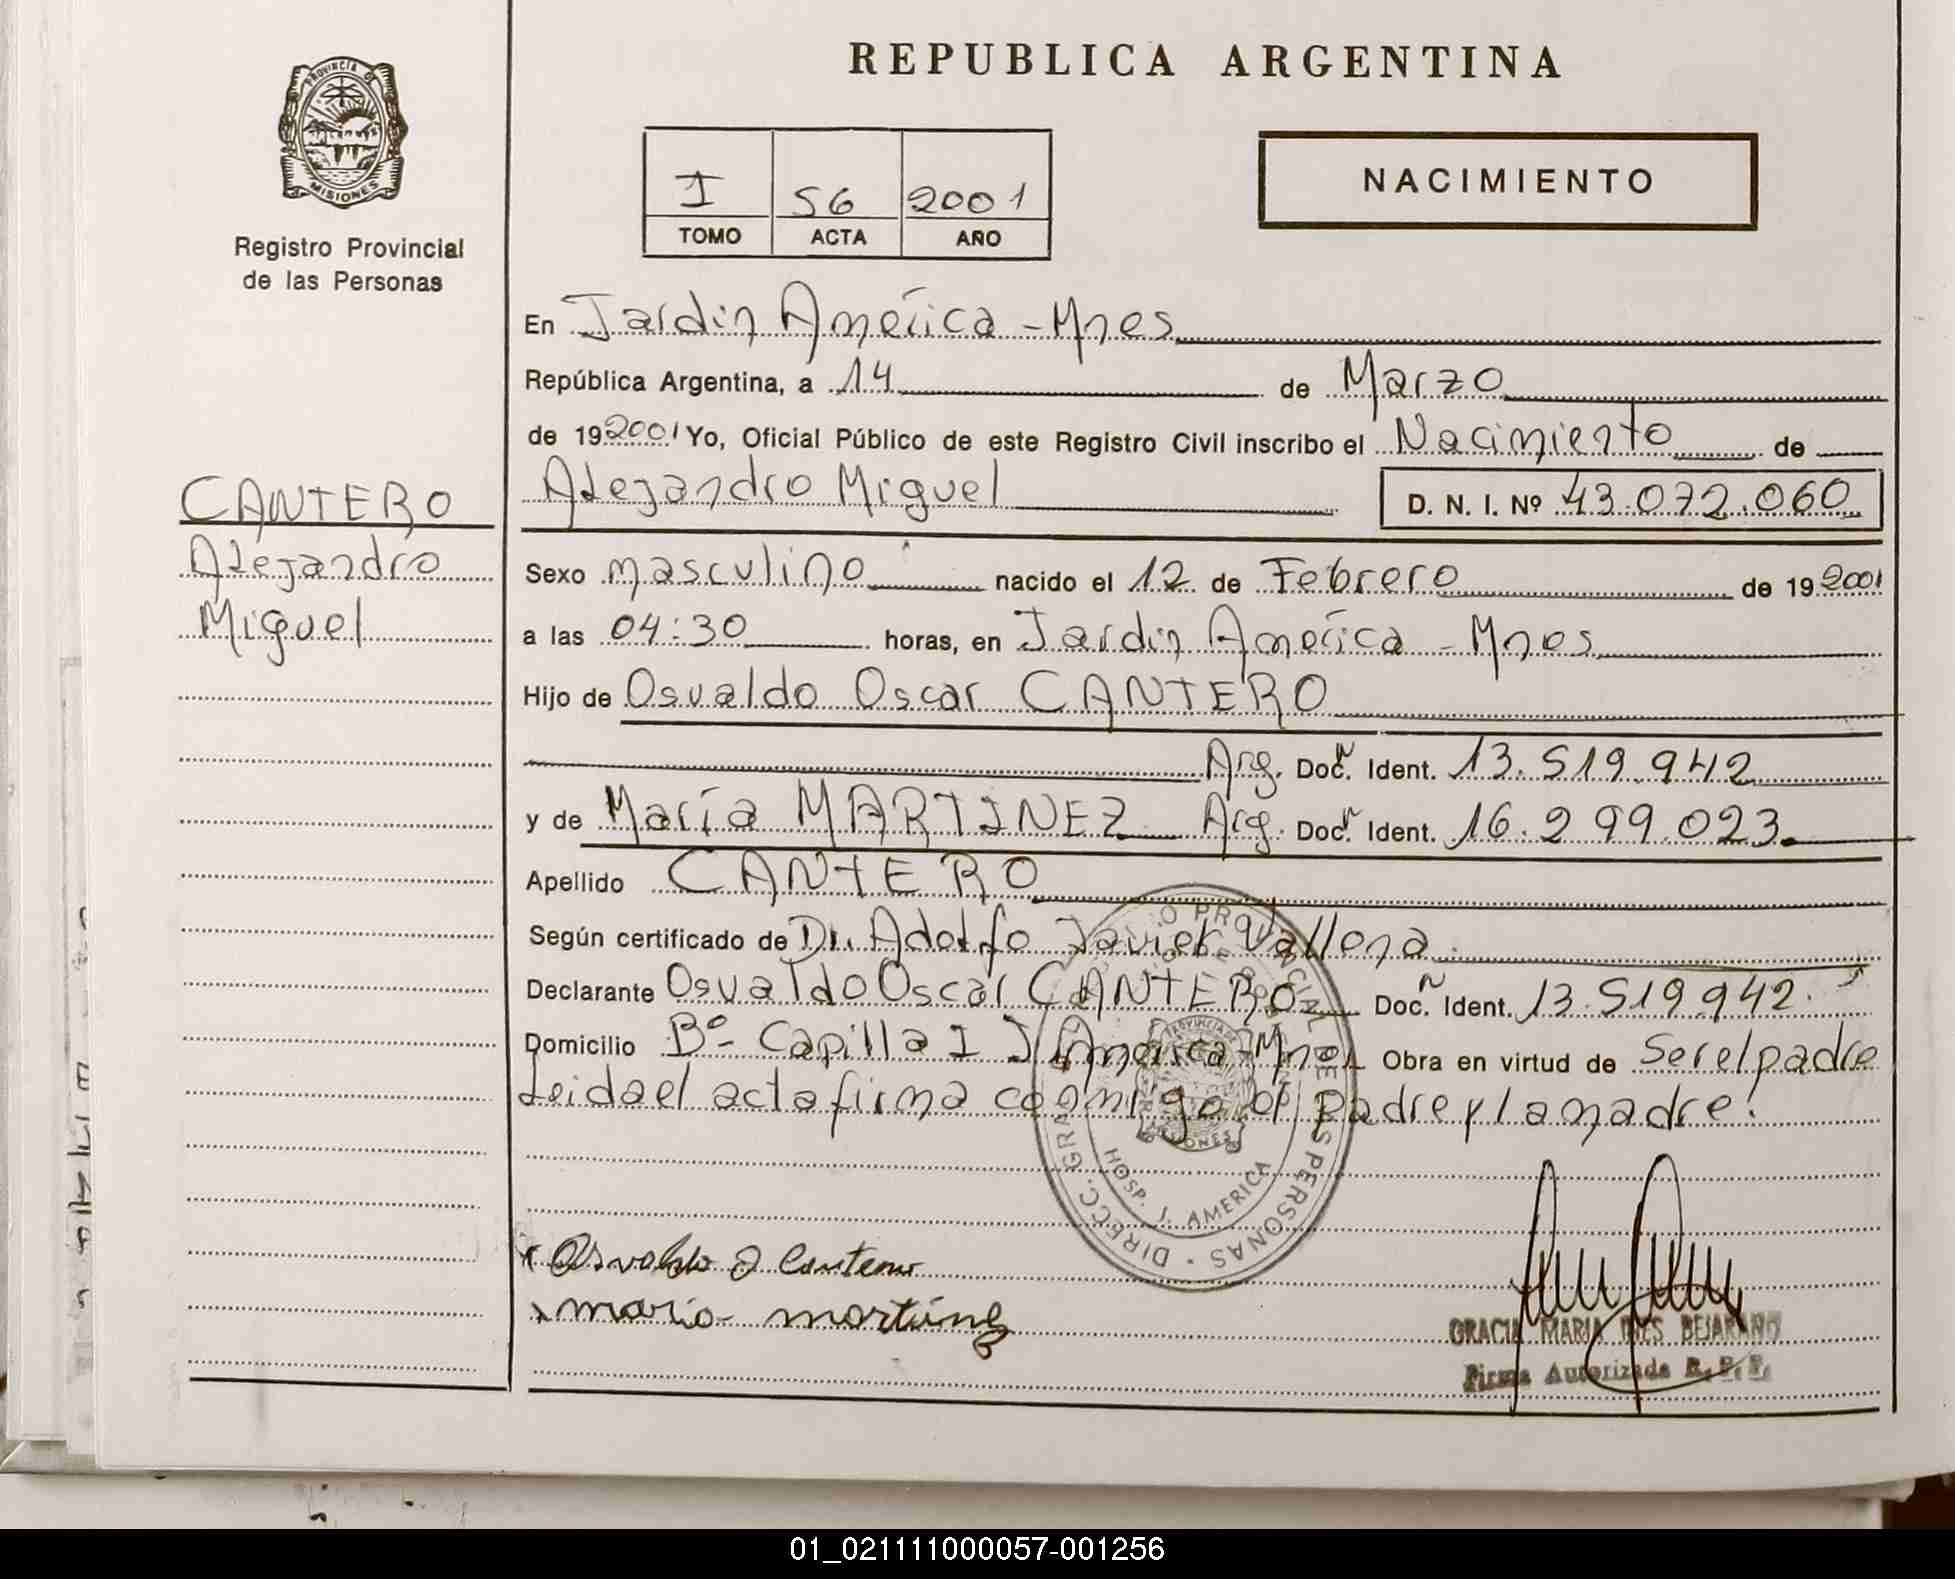 REPUBLICA ARGENTINA
PROVINCIA DE
MISIONES
Registro Provincial
de las Personas
I 56 2001
TOMO ACTA AÑO
NACIMIENTO
En Jardin América - Mnes
República Argentina, a 14 de Marzo
de 19 2001 Yo, Oficial Público de este Registro Civil inscribo el Nacimiento de
CANTERO
Alejandro
Miguel
Alejandro Miguel D. N. I. Nº 43.072.060
Sexo masculino nacido el 12 de Febrero de 19 2001
a las 04:30 horas, en Jardin América - Mnes
Hijo de Osvaldo Oscar CANTERO
Arg. Doc. Ident. 13.519.942
y de María MARTINEZ Arg. Doc. Ident. 16.299.023
Apellido CANTERO
Según certificado de Dr. Adolfo Javier Vallena
Declarante Osvaldo Oscar CANTERO Doc. Ident. 13.519.942
Domicilio Bº Capilla I J América - Mnes Obra en virtud de Ser el padre
Leida el acta firma conmigo el padre y la madre.
HOSP. J. AMERICA
DE LAS PERSONAS
Osvaldo O Cantero
maria martinez
GRACIA MARIA INES BEJARANO
Firma Autorizada R. P. P.
01_021111000057-001256